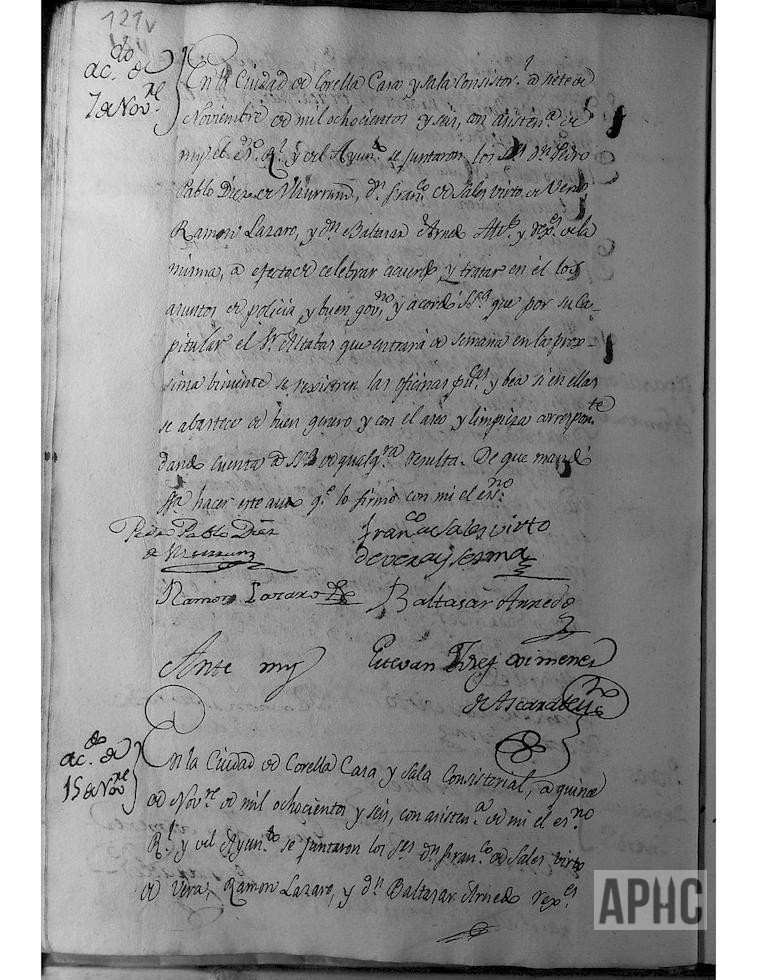 121v
ac.do de
7 de Nov.re
En la Ciudad de Corella Casa y sala consistor.l a siete de
Noviembre de mil ochocientos y seis, con asisten.a de
my el es.no R.l y del Ayun.to se juntaron los S.res d.n Pedro
Pablo Diez de Ulzurrun, d.n fran.co de Sales virto de Vera
Ramon Lazaro, y d.n Baltasar Arnedo Alc.e y rex.es de la
misma, a efecto de celebrar acuerdo y tratar en él los
asuntos de policia y buen gov.no y acordó S.ria que por su Ca-
pitular el Sr. que entrará de semana en la prox-
sima biniente se rexistren las oficinas pu.cas y bea si en ellas
se abastece de buen genero y con el aseo y limpieza correspon.te
dando cuenta a S.ria de qualq.ra resulta. De que mandó
S.ria hacer este auto q.e lo firmó con mi el es.no
Pedro Pablo Diez
de Ulzurrun
fran.co de Sales virto
de vera y lesma
Ramon Lazaro
Baltasar Arnedo
Ante my
Estevan ximenez
de Ascarate
ac.do de
15 de Nov.re
En la Ciudad de Corella Casa y Sala Consistorial, a quince
de Nov.re de mil ochocientos y seis, con asisten.a de mi el es.no
R.l y del Ayun.to se juntaron los S.res d.n fran.co de Sales virto
de Vera, Ramon Lazaro, y d.n Baltasar Arnedo rex.es
APHC